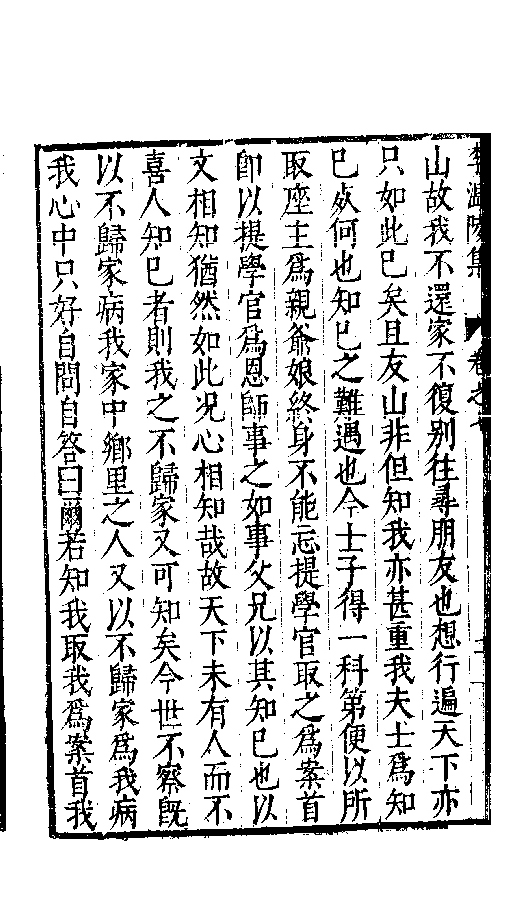 李溫陵集 卷之七
山故我不還家不復别往尋朋友也想行遍天下亦
只如此已矣且友山非但知我亦甚重我夫士爲知
已死何也知已之難遇也今士子得一科第便以所
取座主爲親爺娘終身不能忘提學官取之爲案首
卽以提學官爲恩師事之如事父兄以其知已也以
文相知猶然如此况心相知哉故天下未有人而不
喜人知已者則我之不歸家又可知矣今世不察旣
以不歸家病我家中鄉里之人又以不歸家爲我病
我心中只好自問自答曰爾若知我取我爲案首我